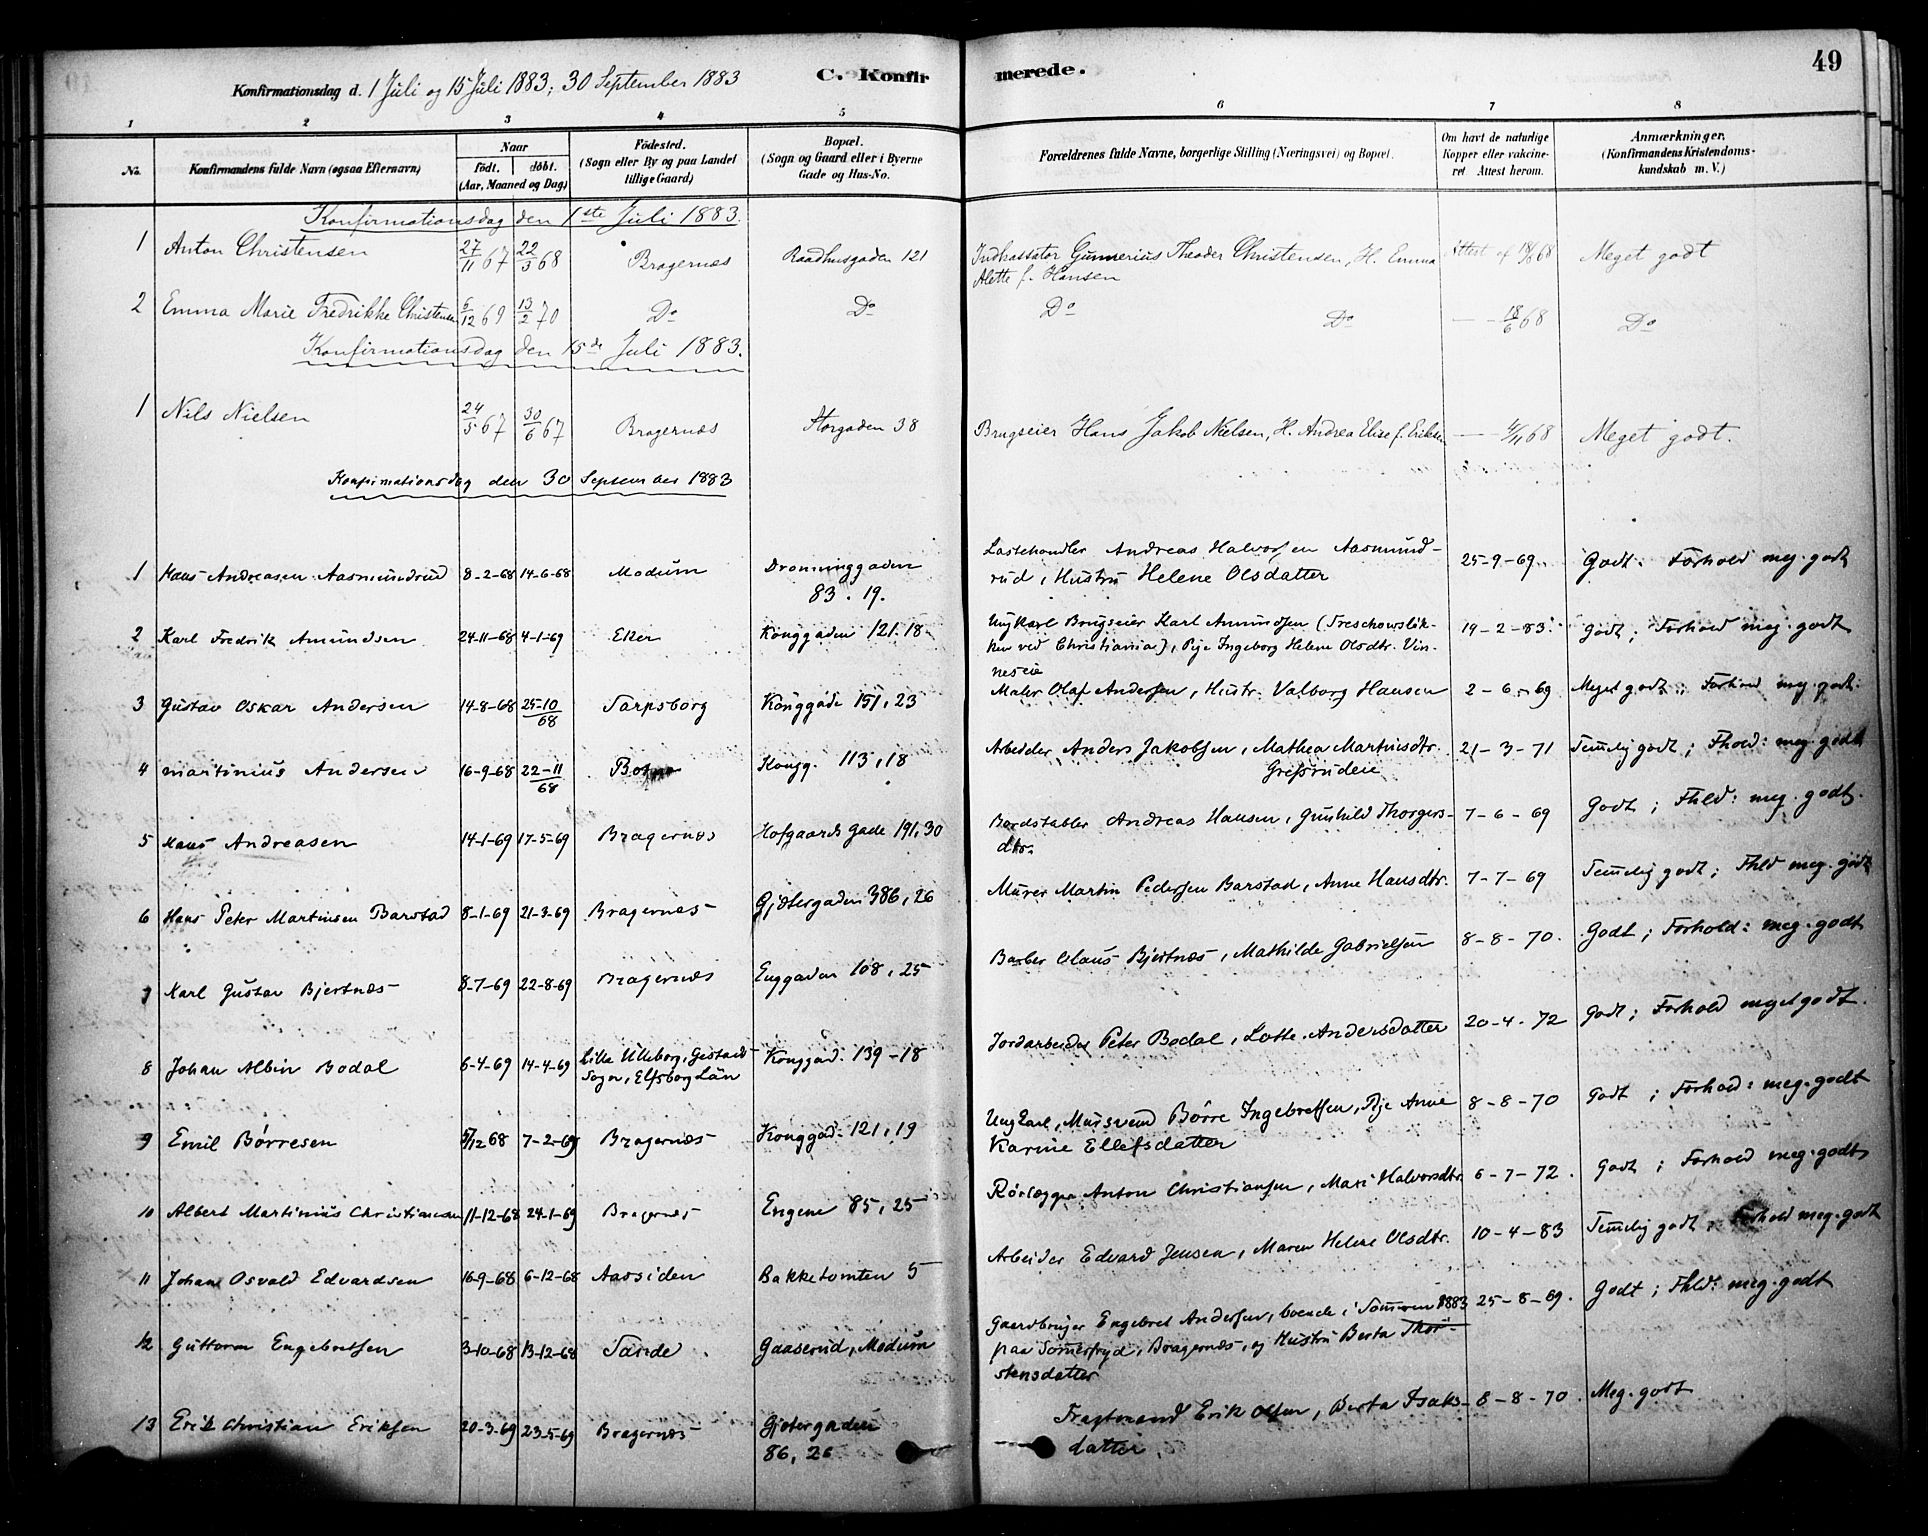 49
Konfirmationsdag d. 1 Juli og 15 Juli 1883; 30 September 1883
C. Konfir merede.
1 2 3 4 5 6 7 8
No. Konfirmandens fulde Navn (ogsaa Efternavn) Naar født. døbt. (Aar, Maaned og Dag) Fødested. (Sogn eller By og paa Landet tillige Gaard) Bopæl. (Sogn og Gaard eller i Byerne Gade og Hus-No. Forældrenes fulde Navne, borgerlige Stilling (Næringsvei) og Bopæl. Om havt de naturlige Kopper eller vakcineret Attest herom. Anmærkninger. (Konfirmandens Kristendomskundskab m. V.)
Konfirmationsdag den 1ste Juli 1883.
1 Anton Christensen 27/11 67 22/3 68 Bragernæs Raadhusgaden 121 Indkassator Gunnerius Theoder Christensen, H. Emma
Alette f. Hansen Attest af 18/6 68 Meget godt
2 Emma Marie Fredrikke Christensen 6/12 69 13/2 70 Do Do Do Do — - 18/6 68 Do
Konfirmationsdag den 15de Juli 1883.
1 Nils Nielsen 24/5 67 30/6 67 Bragernæs Storgaden 38 Brugseier Hans Jakob Nielsen, H. Andrea Elise f. Eriksen — 4/11 68 Meget godt.
Konfirmationsdag den 30 September 1883
1 Hans Andreasen Aasmundrud 8-2-68 14-6-68 Modum Dronninggaden
83. 19. Lastehandler Andreas Halvorsen Aasmund-
rud, Hustru Helene Olsdatter 25-9-69. Godt. Forhold meg. godt
2 Karl Fredrik Amundsen 24-11-68 4-1-69 Eker Konggaden 121.18. Ungkarl Brugseier Karl Amundsen (Treschowsløk-
ken ved Christiania), Pige Ingeborg Helene Olsdtr. Vin-
neseie 19-2-83. Godt; Forhold meg. godt
3 Gustav Oskar Andersen 14-8-68 25-10/68 Sarpsborg Konggade 151, 23 Maler Olaf Andersen, Hustr. Valborg Hansen 2-6-69 Meget godt; Forhold meg. godt.
4 Martinius Andersen 16-9-68 22-11/68 Kongg. 113, 18 Arbeider Anders Jakobsen, Mathea Martinsdtr.
Gresrudeie 21-3-71 Temmelig godt; Fhold: meg. godt
5 Hans Andreasen 14-1-69 17-5-69 Bragernæs Hofgaards gade 191, 30 Bordstabler Andreas Hansen, Gunhild Thorgers-
dtr. 7-6-69 Godt; Fhld: meg. godt.
6 Hans Peter Martinsen Barstad 8-1-69 21-3-69 Bragernæs Gjætergaden 386, 26 Murer Martin Pedersen Barstad, Anne Hansdtr. 7-7-69 Temmelig godt; Fhld meg. godt
7 Karl Gustav Bjertnæs 8-7-69 22-8-69 Bragernæs Enggaden 108, 25 Barber Olaus Bjertnæs, Mathilde Gabrielsen 8-8-70. Godt; Forhold: meg. godt
8 Johan Albin Bodal 6-4-69 14-4-69 Lille Ulleborg, Gestads
Sogn, Elfsborg Län Konggad. 139-18 Jordarbeider Peter Bodal, Lotte Andersdatter 20-4-72 Godt; Forhold meget godt.
9 Emil Børresen 5/12 68 7-2-69 Bragernæs Konggad. 121, 19 Ungkarl, Mursvend Børre Ingebretsen, Pige Anne
Karine Ellefsdatter 8-8-70 Godt; Forhold: meg. godt
10 Albert Martinius Christiansen 11-12-68 24-1-69 Bragernæs Engene 85, 25 Rørlægger Anton Christiansen, Mari Halvorsdtr. 6-7-72. Godt; Forhold meg. godt
11 Johan Osvald Edvardsen 16-9-68 6-12-68 Aassiden Bakketomten 5 Arbeider Edvard Jensen, Maren Helene Olsdtr. 10-4-83 Temmelig godt; Forhold meg. godt
12 Guttorm Engebretsen 3-10-68 13-12-68 Sande Gaaserud, Modum Gaardbruger Engebret Andersen, boende i Sommeren 1883
paa Sommerfryd, Bragernæs, og Hustru Berta Thor-
stensdatter 25-8-69. Godt; Fhld: meg. godt
13 Erik Christian Eriksen 20-3-69 23-5-69 Bragernæs Gjætergaden
86, 26 Fragtmand Erik Olsen, Berta Isaks-
datter. 8-8-70. Meg. godt